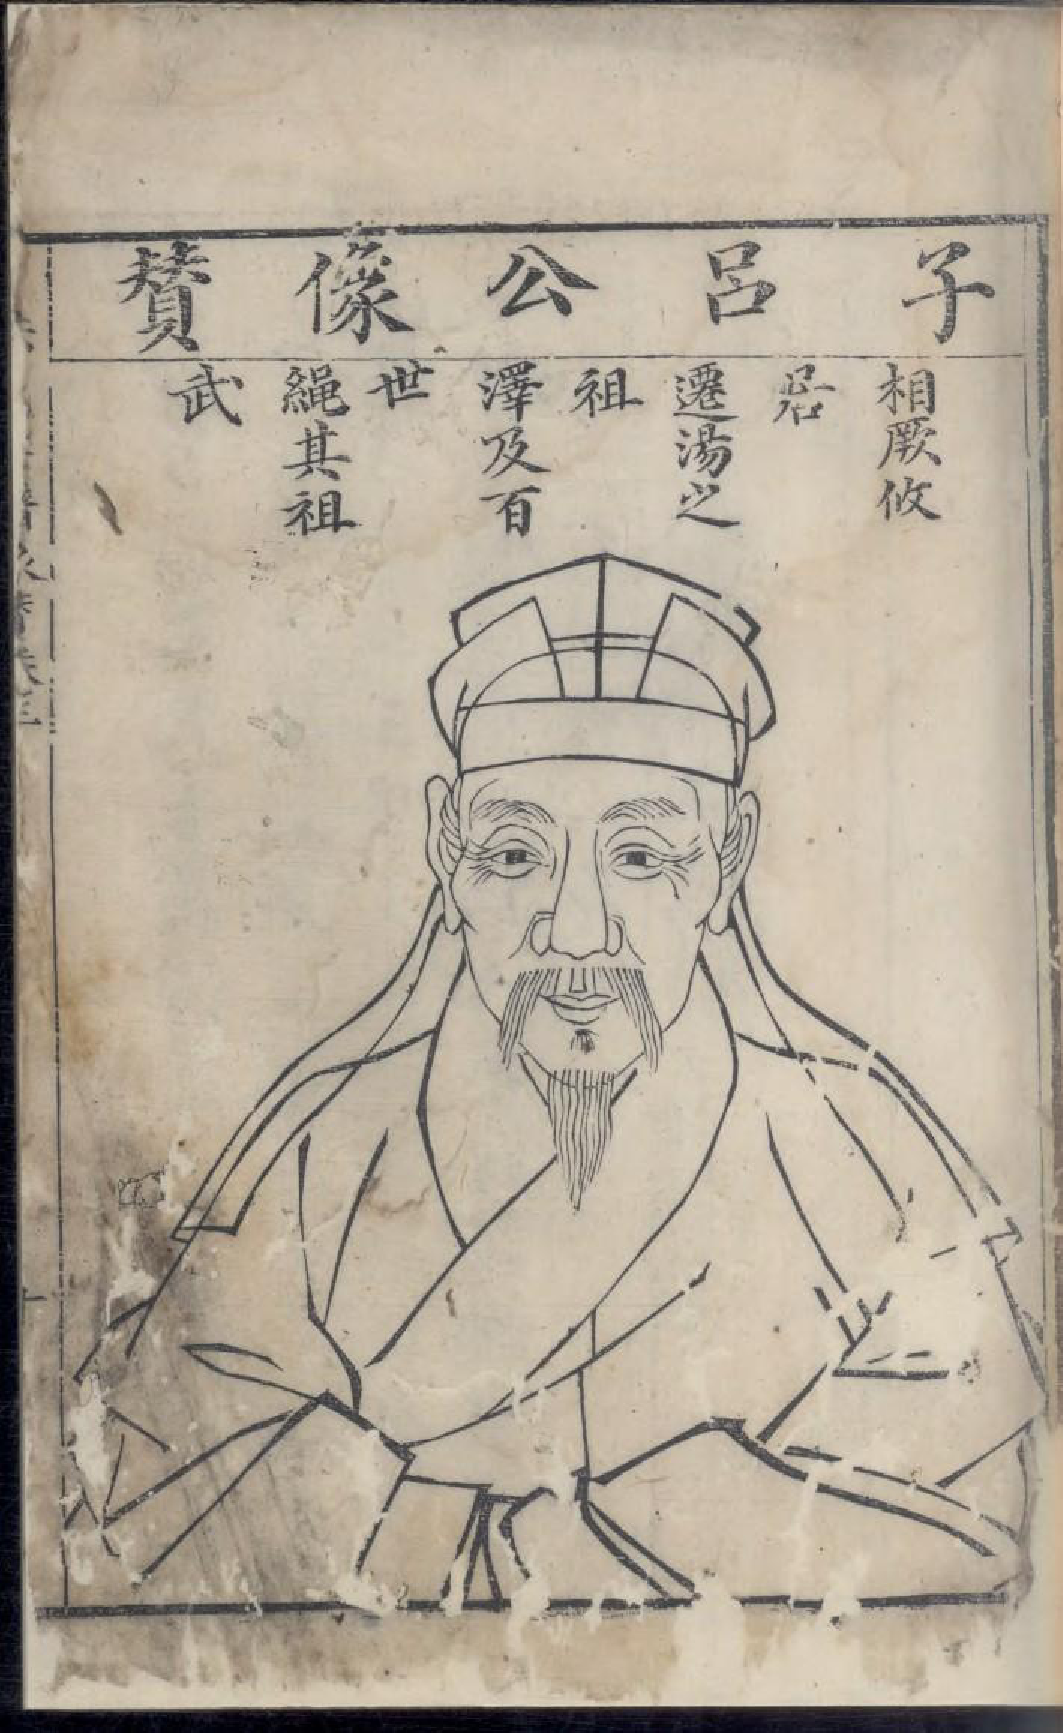 子呂公像賛
相厥攸
居
遷湯之
祖
澤及百
世
繩其祖
武